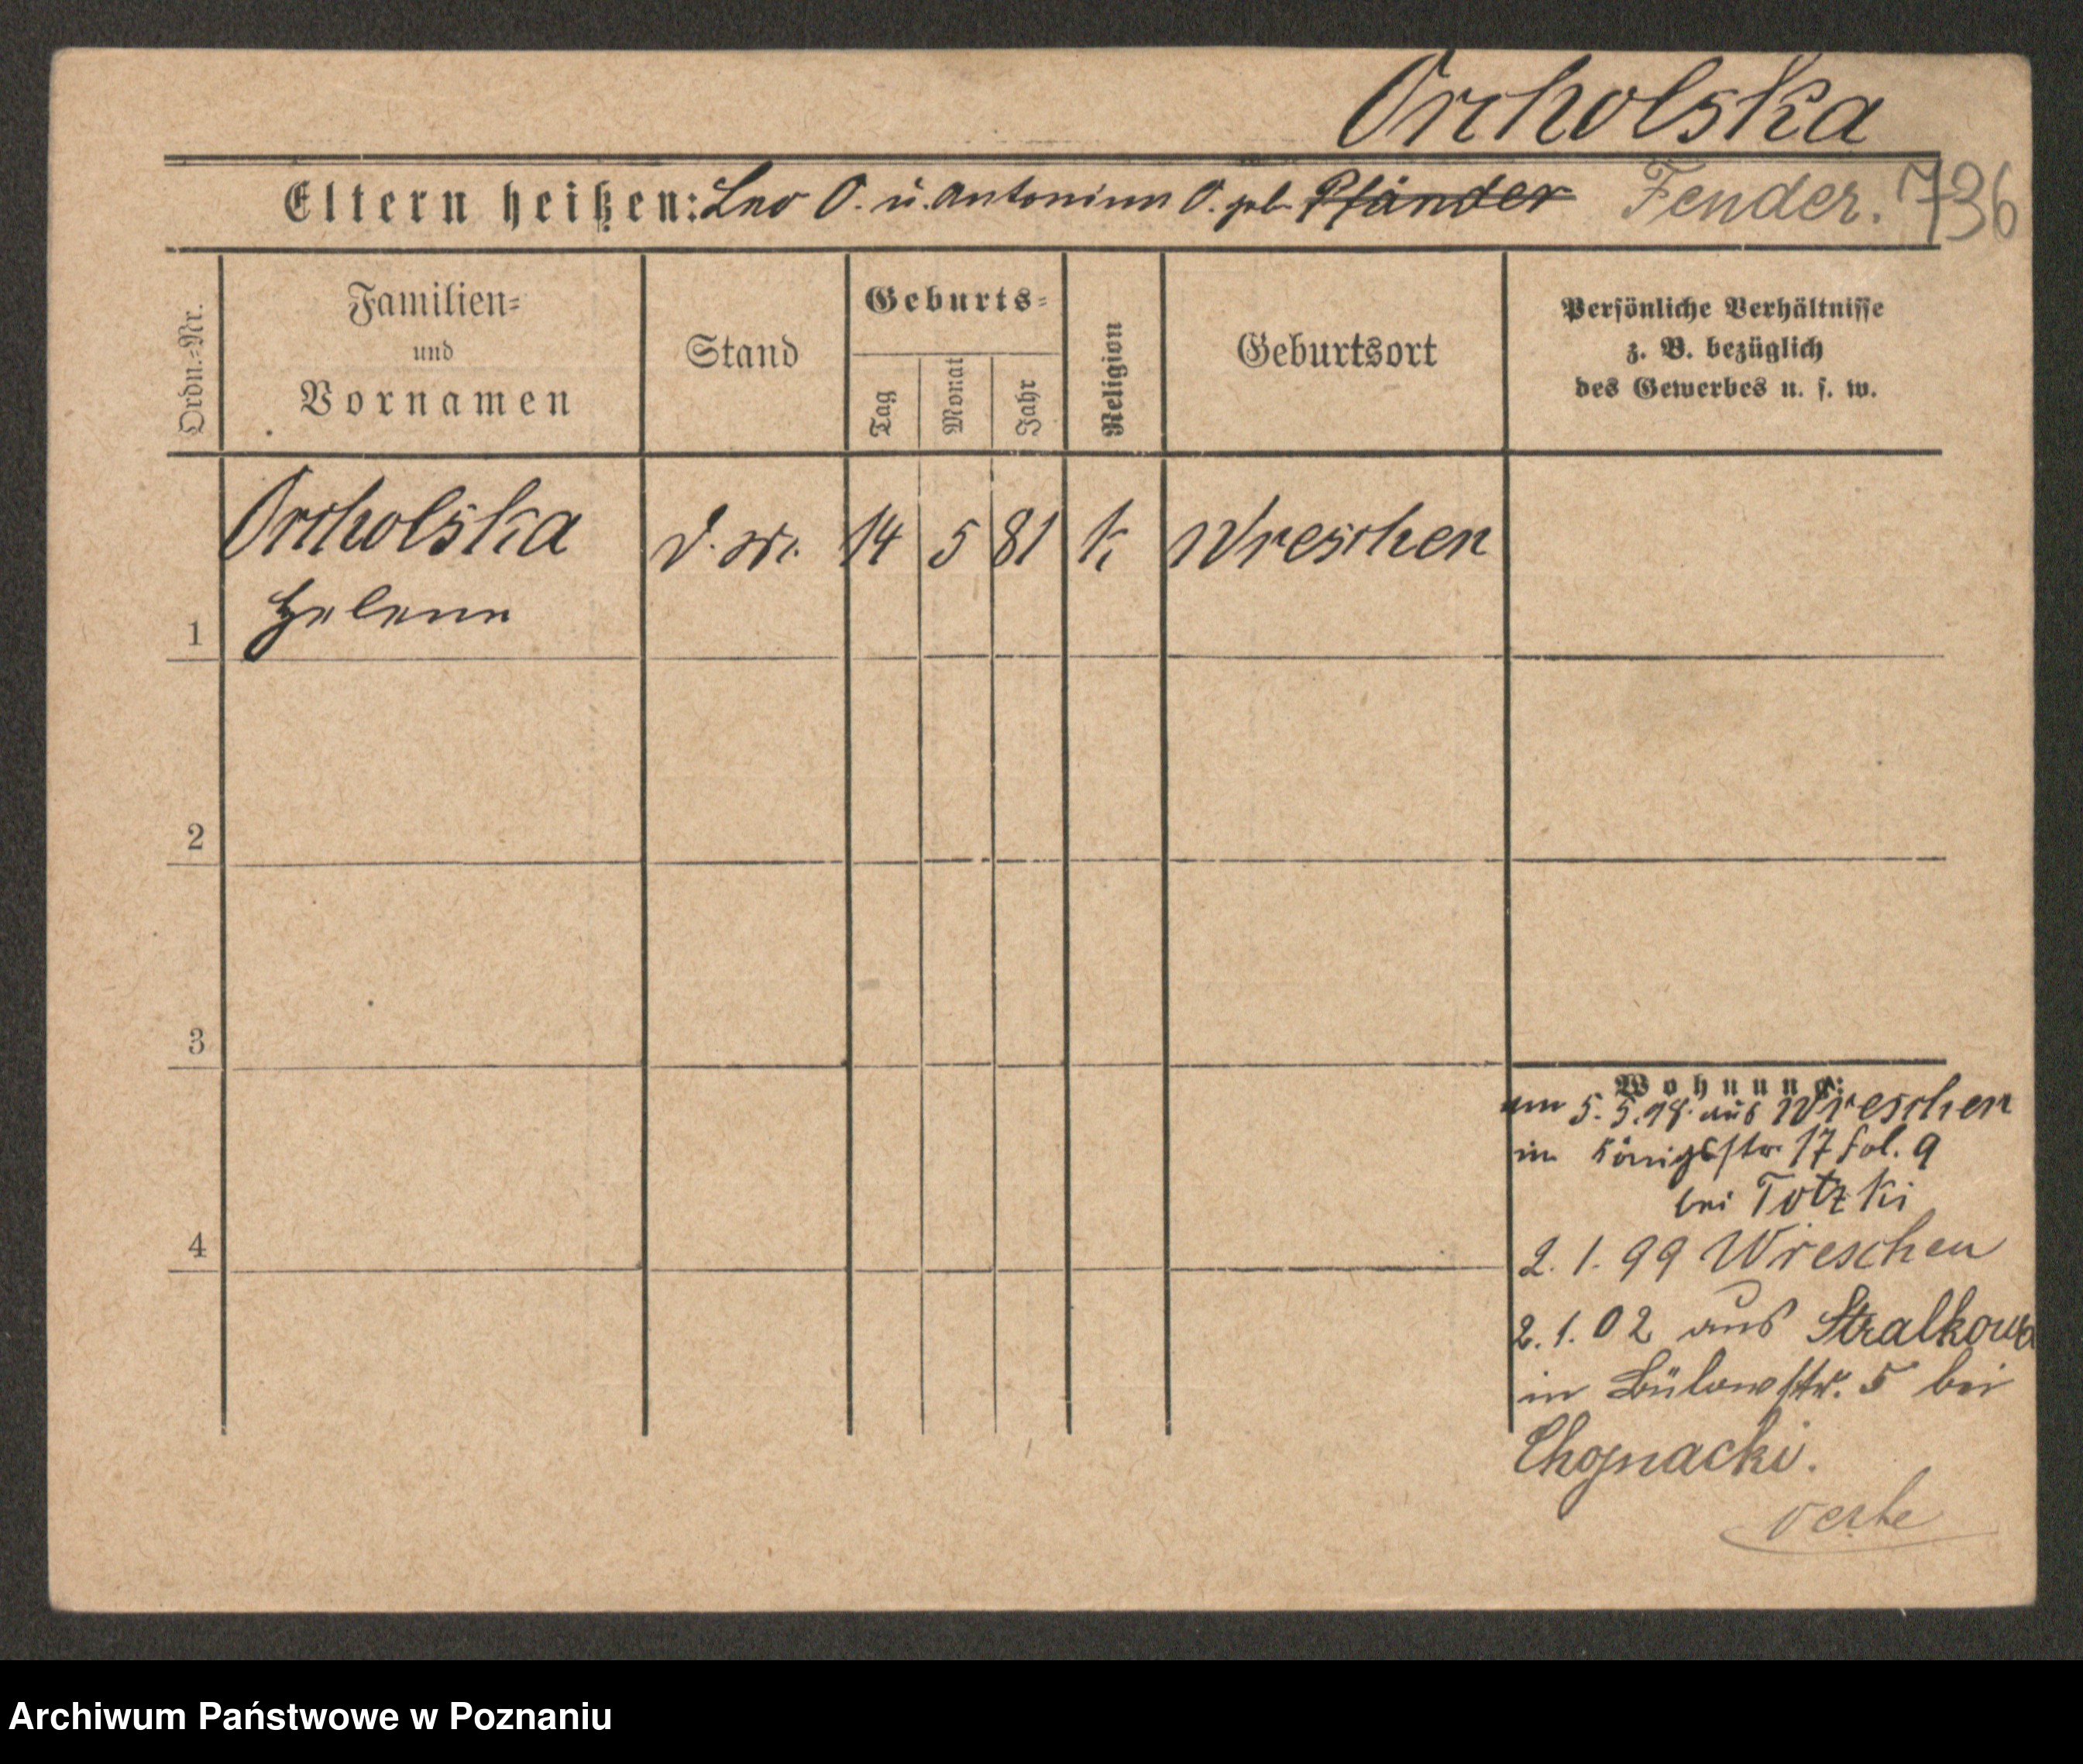 Orcholska
Eltern heißen: Leo O. u. Antonina O. geb. Pfänder Fender. 736
Ordn.-Nr.
Familien-
und
Vornamen
Stand
Geburts-
Tag
Monat
Jahr
Religion
Geburtsort
Persönliche Verhältnisse
z. B. bezüglich
des Gewerbes u. s. w.
Orcholska 14 5 81 k Wreschen
Helena
1
2
3
4
Wohnung:
am 5. 5. 98. aus Wreschen
in Königstr. 17 fol. 9
bei Totzki
2. 1. 99 Wreschen
2. 1. 02 aus Stralkowo
in Bülowstr. 5 bei
Chojnacki.
Archiwum Państwowe w Poznaniu